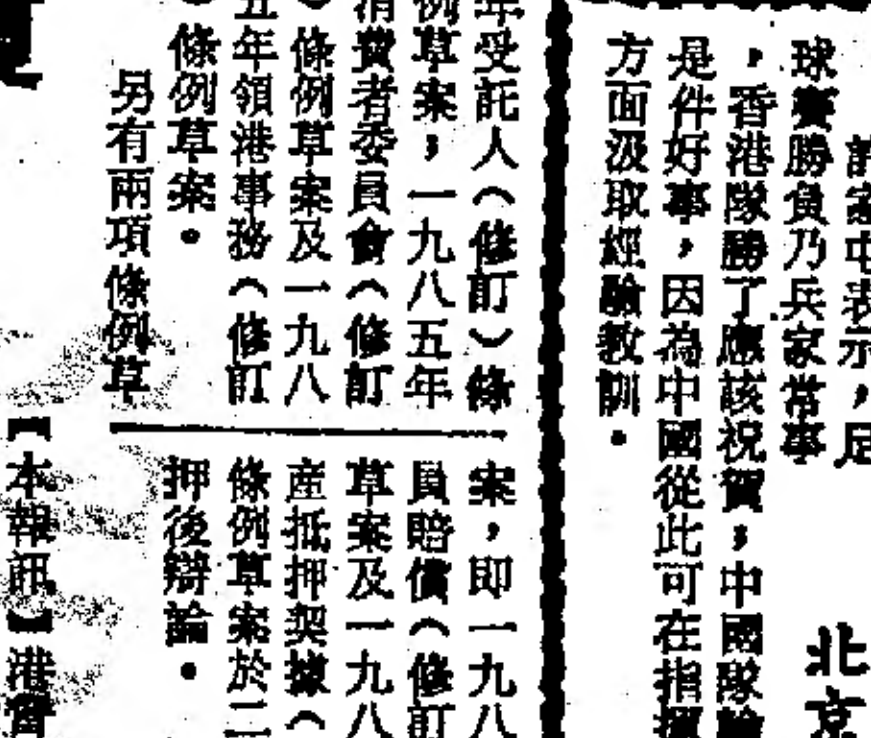 許家屯表示，足
球賽勝負乃兵家常事
，香港隊勝了應該祝賀，中國隊輸
是件好事，因為中國從此可在指揮
方面汲取經驗教訓。
北京
年受託人（修訂）條
例草案，一九八五年
消費者委員會（修訂
）條例草案及一九八
五年領港事務（修訂
）條例草案。
另有兩項條例草
案，即一九八
員賠償（修訂
草案及一九八
產抵押契據（
條例草案於二
押後辯論。
【本報訊】港